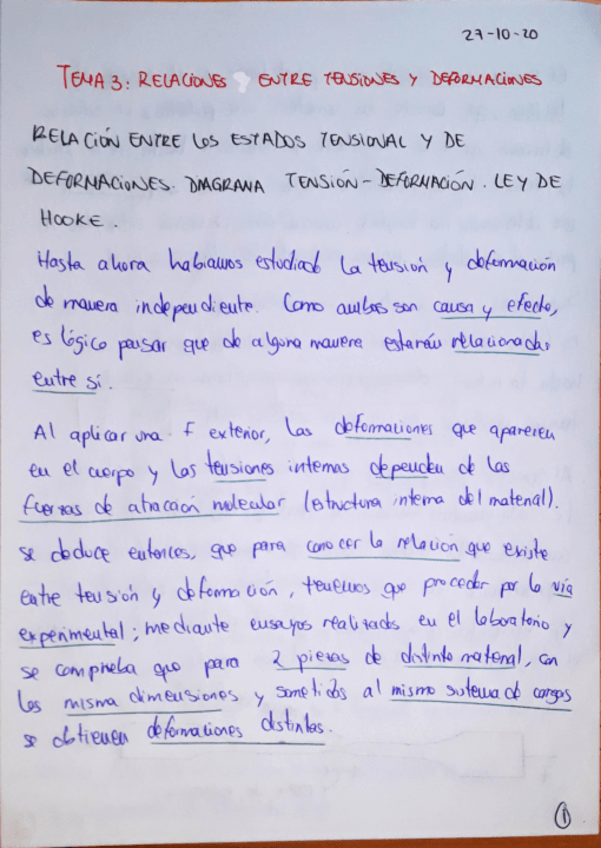 27-10-20
TEMA 3: RELACIONES ENTRE TENSIONES Y DEFORMACIONES
RELACIÓN ENTRE LOS ESTADOS TENSIONAL Y DE
DEFORMACIONES. DIAGRAMA TENSIÓN-DEFORMACIÓN. LEY DE
HOOKE
Hasta ahora habíamos estudiado la tensión y deformación
de manera independiente. Como ambas son causa y efecto,
es lógico pensar que de alguna manera estarán relacionadas
entre sí.
Al aplicar una F exterior, las deformaciones que aparecen
en el cuerpo y las tensiones internas dependen de las
fuerzas de atracción molecular (estructura interna del material).
se deduce entonces, que para conocer la relación que existe
entre tensión y deformación, tenemos que proceder por la vía
experimental; mediante ensayos realizados en el laboratorio y
se comprueba que para 2 piezas de distinto material, con
las misma dimensiones y sometidos al mismo sistema de cargas
se obtienen deformaciones distintas.
1